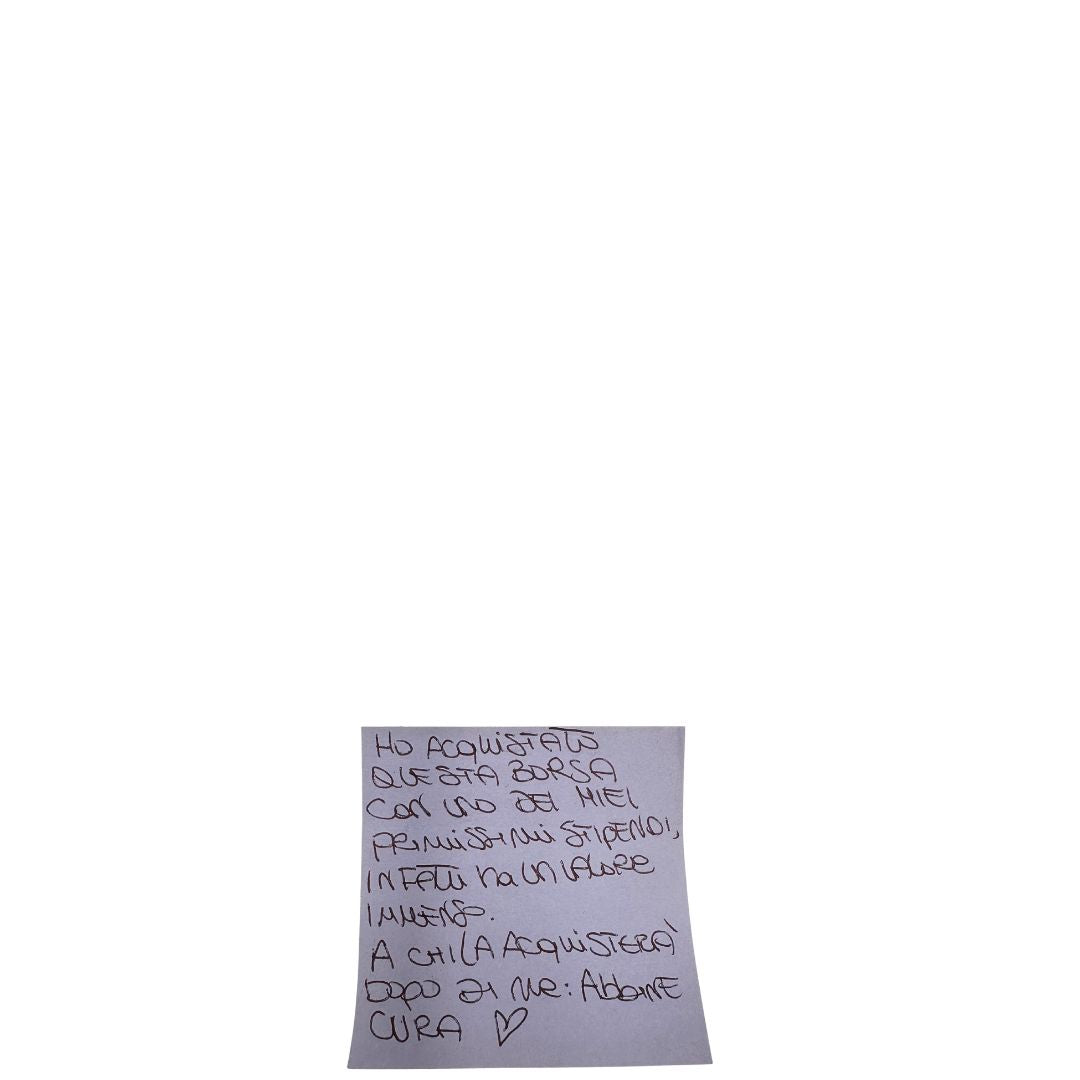 HO ACQUISTATO
QUESTA BORSA
CON UNO DEI MIEI
PRIMISSIMI STIPENDI,
INFATTI HA UN VALORE
IMMENSO.
A CHI LA ACQUISTERÀ
DOPO DI ME: ABBINE
CURA ♡